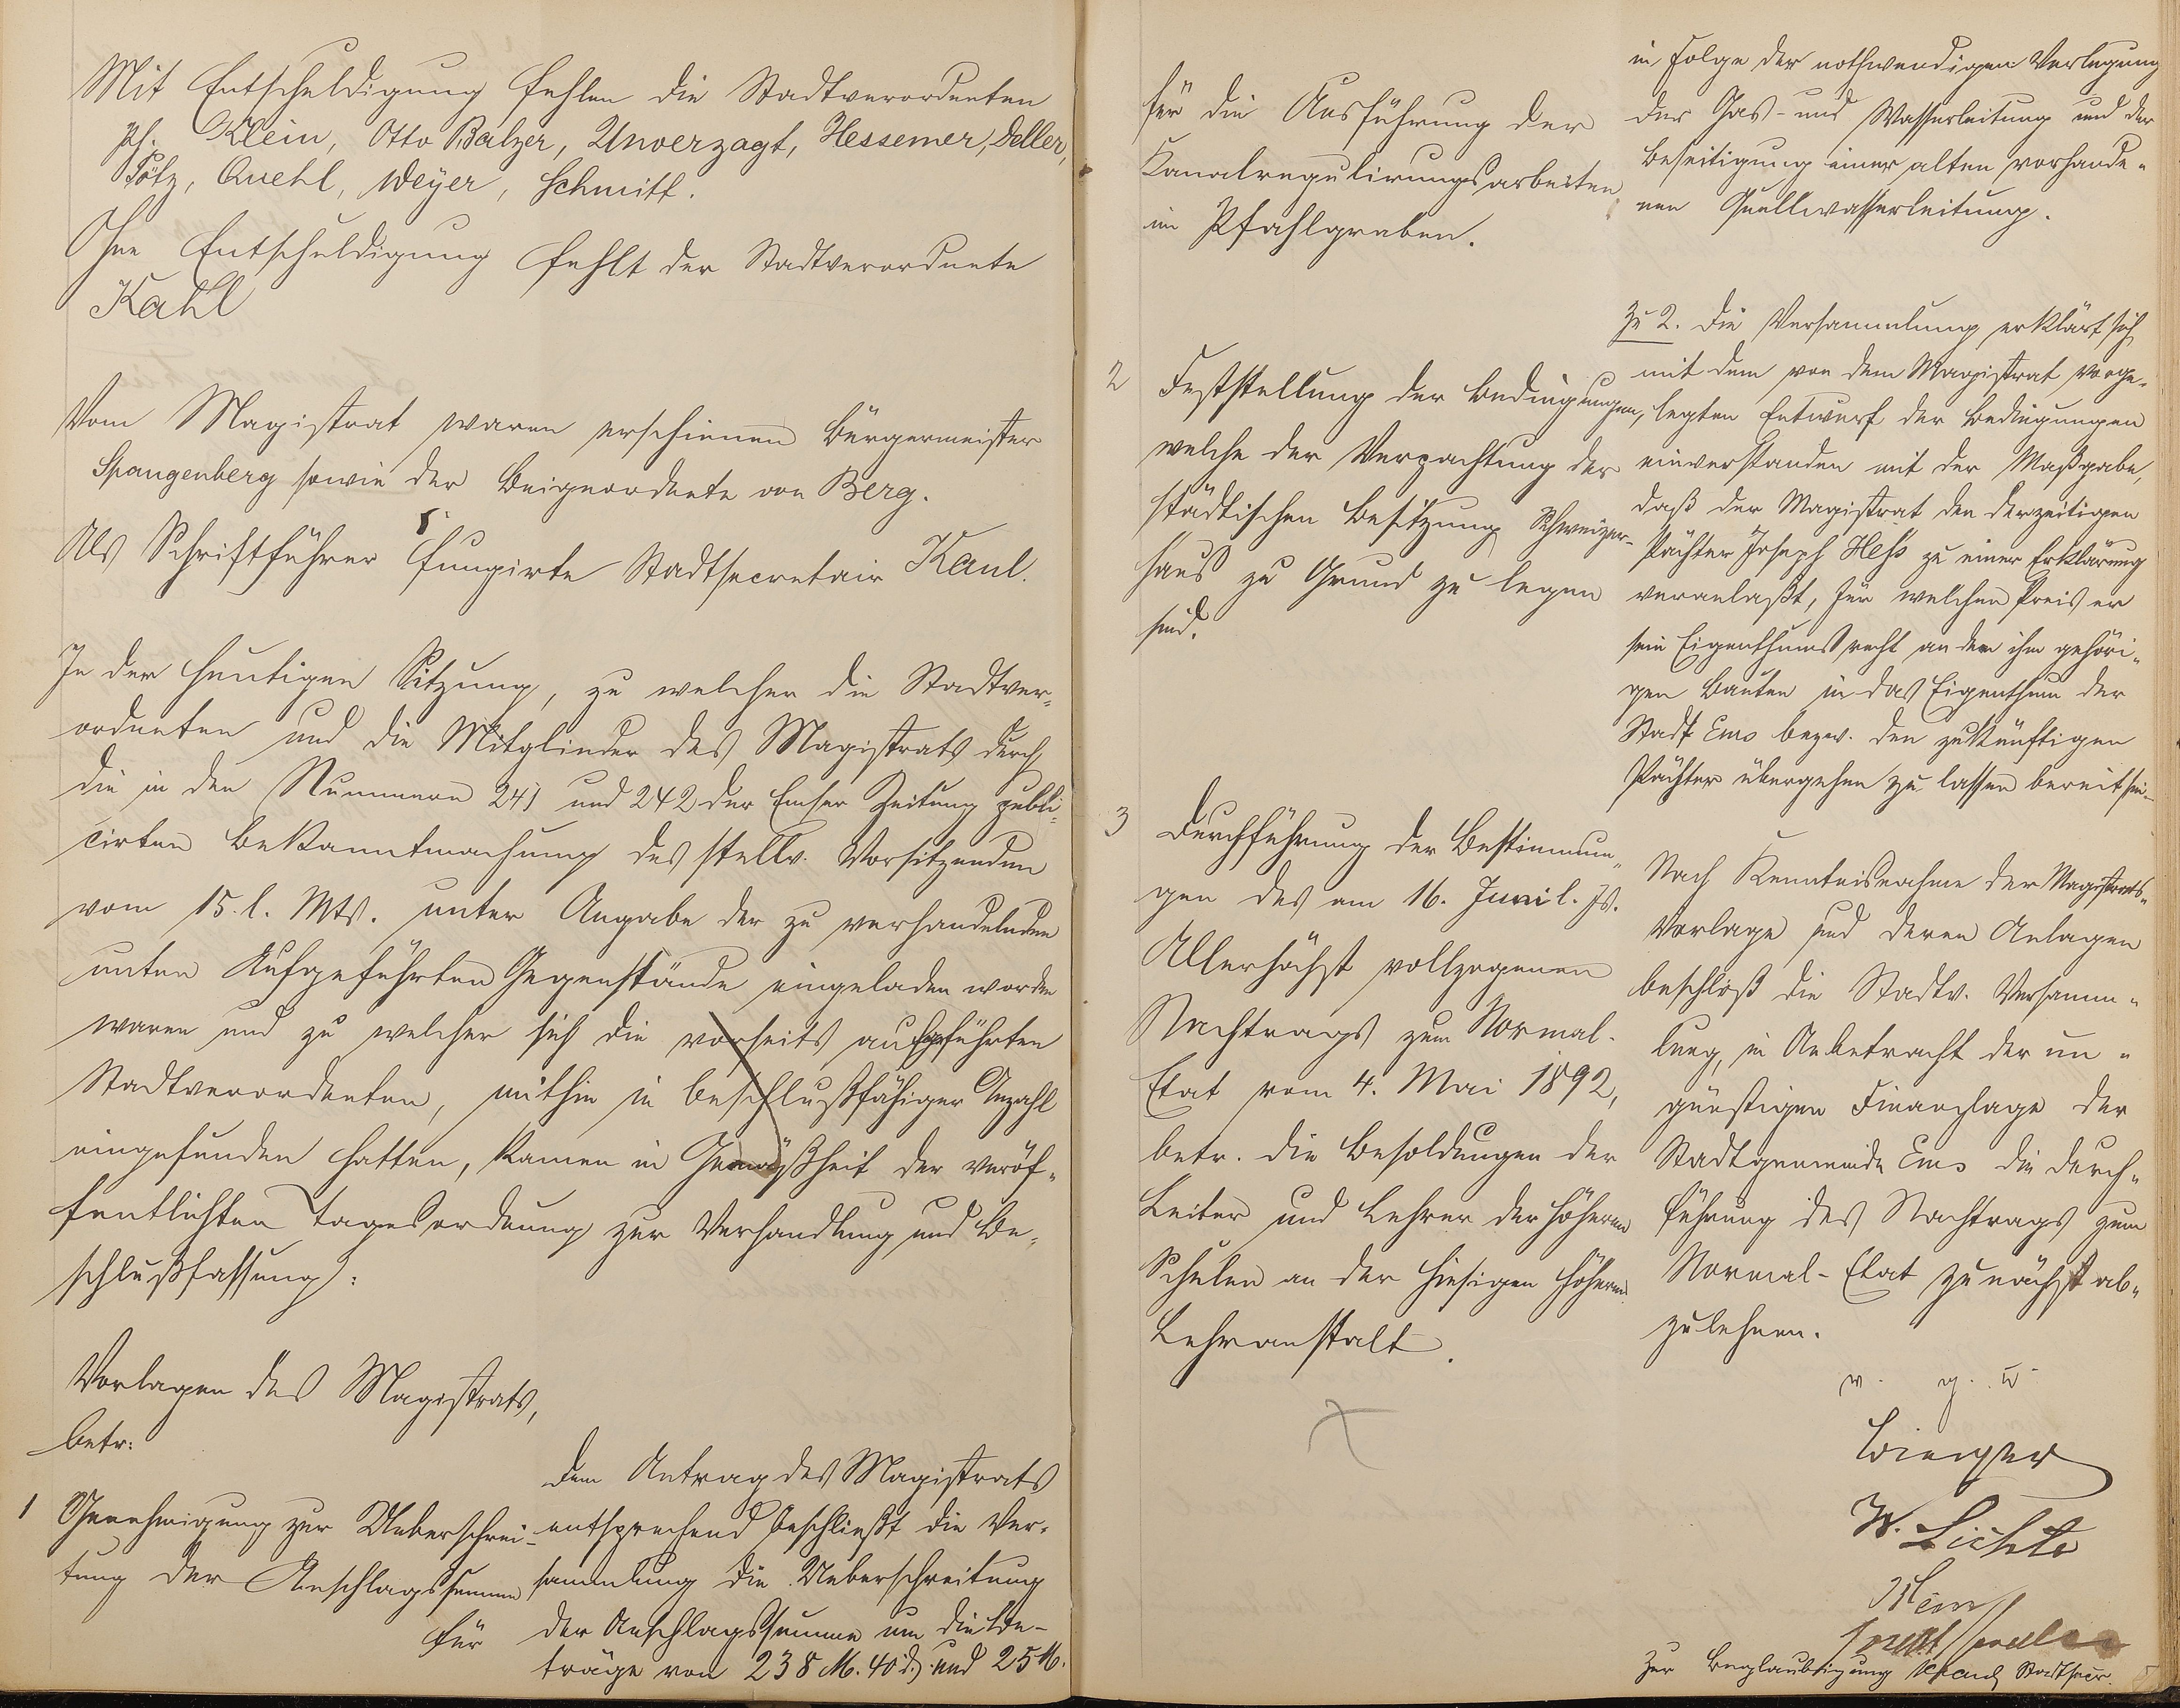 Mit Entschuldigung fehlen die Stadtverordneten
Ph. Klein, Otto Balzer, Unverzagt, Hessemer, Deller,
Pötz, Quehl, Weyer, Schmitt.
Ohne Entschuldigung fehlt der Stadtverordnete
Kahl
Vom Magistrat waren erschienen Bürgermeister
Spangenberg sowie der Beigeordnete von Berg.
Als Schriftführer fungirte Stadtsecretair Kaul.
In der heutigen Sitzung, zu welcher die Stadtver-
ordneten und die Mitglieder des Magistrats durch
die in den Nummern 241 und 242 der Emser Zeitung publi-
cirten Bekanntmachung des stellv. Vorsitzenden
vom 15. l. Mts. unter Angabe der zu verhandelnden
unten Aufgeführten Gegenstände eingeladen worden
waren und zu welcher sich die vorseits aufgeführten
Stadtverordneten, mithin in beschlußfähiger Anzahl
eingefunden hatten, kamen in Gemäßheit der veröf-
fentlichten Tagesordnung zur Verhandlung und Be-
schlußfassung:
Vorlagen des Magistrats,
betr:
1 Genehmigung zur Ueberschrei-
tung der Anschlagssumme
für
Dem Antrag des Magistrats
entsprechend beschließt die Ver-
sammlung die Ueberschreitung
der Anschlagssumme um die Be-
träge von 238 M. 40 d. und 25 M.
für die Ausführung der
Kanalregulirungsarbeiten
im Pfahlgraben.
in Folge der nothwendigen Verlegung
der Gas- und Wasserleitung und der
Beseitigung einer alten vorhande-
nen Quellwasserleitung.
2 Feststellung der Bedingungen,
welche der Verpachtung der
städtischen Besitzung Schweizer-
haus zu Grund zu legen
sind.
Zu 2. Die Versammlung erklärt sich
mit dem von dem Magistrat vorge-
legten Entwurf der Bedingungen
einverstanden mit der Maßgabe,
daß der Magistrat den derzeitigen
Pächter Joseph Heß zu einer Erklärung
veranlaßt, für welchen Preis er
sein Eigenthumsrecht an den ihm gehöri-
gen Bauten in das Eigenthum der
Stadt Ems bezw. den zukünftigen
Pächter übergehen zu lassen bereit sei.
3 Durchführung der Bestimmun-
gen des am 16. Juni l. Js.
Allerhöchst vollzogenen
Nachtrags zum Normal-
Etat vom 4. Mai 1892,
betr. die Besoldungen der
Leiter und Lehrer der höheren
Schulen an der hiesigen höheren
Lehranstalt.
Nach Kenntnisnahme der Magistrats-
Vorlage und deren Anlagen
beschloß die Stadtv. Versamm-
lung, in Anbetracht der un-
günstigen Finanzlage der
Stadtgemeinde Ems die Durch-
führung des Nachtrags zum
Normal-Etat zunächst ab-
zulehnen.
v. g. u.
W. Lichte
Zur Beglaubigung Kaul Stadtsecr.